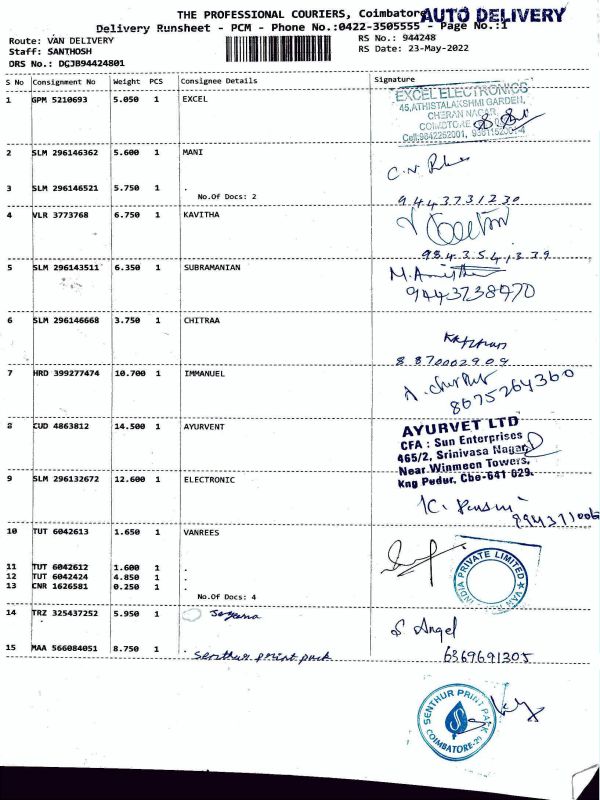 THE PROFESSIONAL COURIERS, Coimbator
AUTO DELIVERY
Delivery Runsheet - PCM - Phone No.:0422-3505555 - Page No.:1
Route: VAN DELIVERY
RS No.: 944248
Staff: SANTHOSH
RS Date: 23-May-2022
DRS No.: DGJB94424801
S No Consignment No Weight PCS Consignee Details Signature
1 GPM 5210693 5.050 1 EXCEL
EXCEL ELECTRONICS
45,ATHISTALAKSHMI GARDEN,
CHERAN NAGAR,
2 SLM 296146362 5.600 1 MANI
3 SLM 296146521 5.750 1 .
No.Of Docs: 2
9443731230
4 VLR 3773768 6.750 1 KAVITHA
9843541339
5 SLM 296143511 6.350 1 SUBRAMANIAN
9443738970
6 SLM 296146668 3.750 1 CHITRAA
8870002909
7 HRD 399277474 10.700 1 IMMANUEL
8675264360
8 CUD 4863812 14.500 1 AYURVENT
AYURVET LTD
CFA : Sun Enterprises
465/2, Srinivasa Nagar,
Near Winmeen Towers,
Kng Pudur, Cbe-641 029.
9 SLM 296132672 12.600 1 ELECTRONIC
10 TUT 6042613 1.650 1 VANREES
11 TUT 6042612 1.600 1 .
12 TUT 6042424 4.850 1 .
13 CNR 1626581 0.250 1 .
No.Of Docs: 4
INDIA PRIVATE LIMITED
14 TRZ 325437252 5.950 1
S Angel
15 MAA 566084051 8.750 1 . Senthur print pack
6369691305
SENTHUR PRINT PACK
COIMBATORE-29